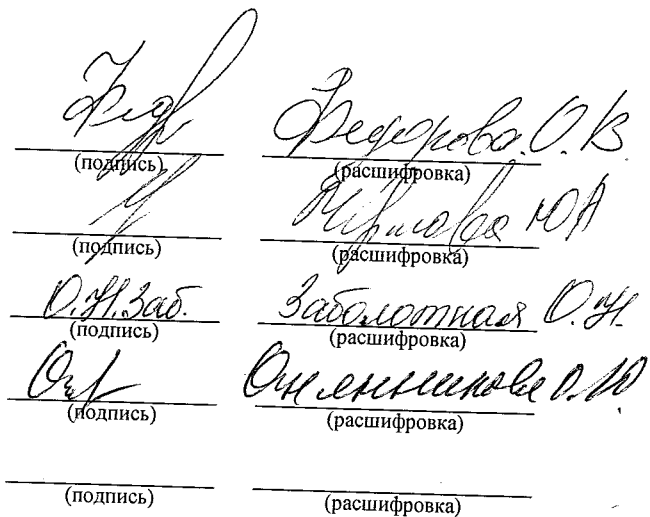 Федорова О.В.
(подпись) (расшифровка)
Ю А
(подпись) (расшифровка)
О.Н.Заб. Заболотная О.Н.
(подпись) (расшифровка)
О.Ю.
(подпись) (расшифровка)
(подпись) (расшифровка)